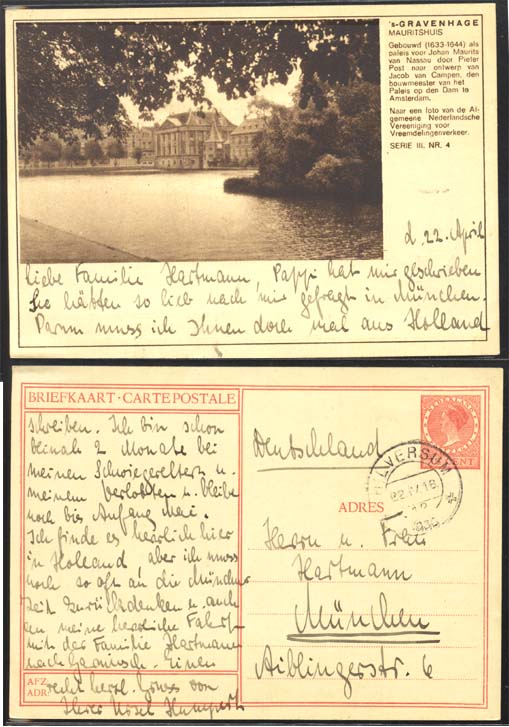 's-GRAVENHAGE
MAURITSHUIS
Gebouwd (1633-1644) als
paleis voor Johan Maurits
van Nassau door Pieter
Post naar ontwerp van
Jacob van Campen, den
bouwmeester van het
Paleis op den Dam te
Amsterdam.
Naar een foto van de Al-
gemeene Nederlandsche
Vereeniging voor
Vreemdelingenverkeer.
SERIE III. NR. 4
d. 22. April
Liebe Familie Hartmann, Pappi hat mir geschrieben
Sie hätten so lieb nach mir gefragt in München.
Darum muss ich Ihnen doch mal aus Holland
BRIEFKAART · CARTE POSTALE
schreiben. Ich bin schon
beinah 2 Monate bei
meinen Schwiegereltern u.
meinem Verlobten u. bleibe
noch bis Anfang Mai.
Ich finde es herrlich hier
in Holland, aber ich muss
noch so oft an die Münchner
Zeit zurückdenken u. auch
an meine herrliche Fahrt
mit der Familie Hartmann
nach Garmisch. Einen
recht herzl. Gruss von
Ihrer Ursel
AFZ.
ADR.
NEDERLAND
CENT
HILVERSUM
22.IV.18
Deutschland
ADRES
Herrn u. Frau
Hartmann
München
Aiblingerstr. 6